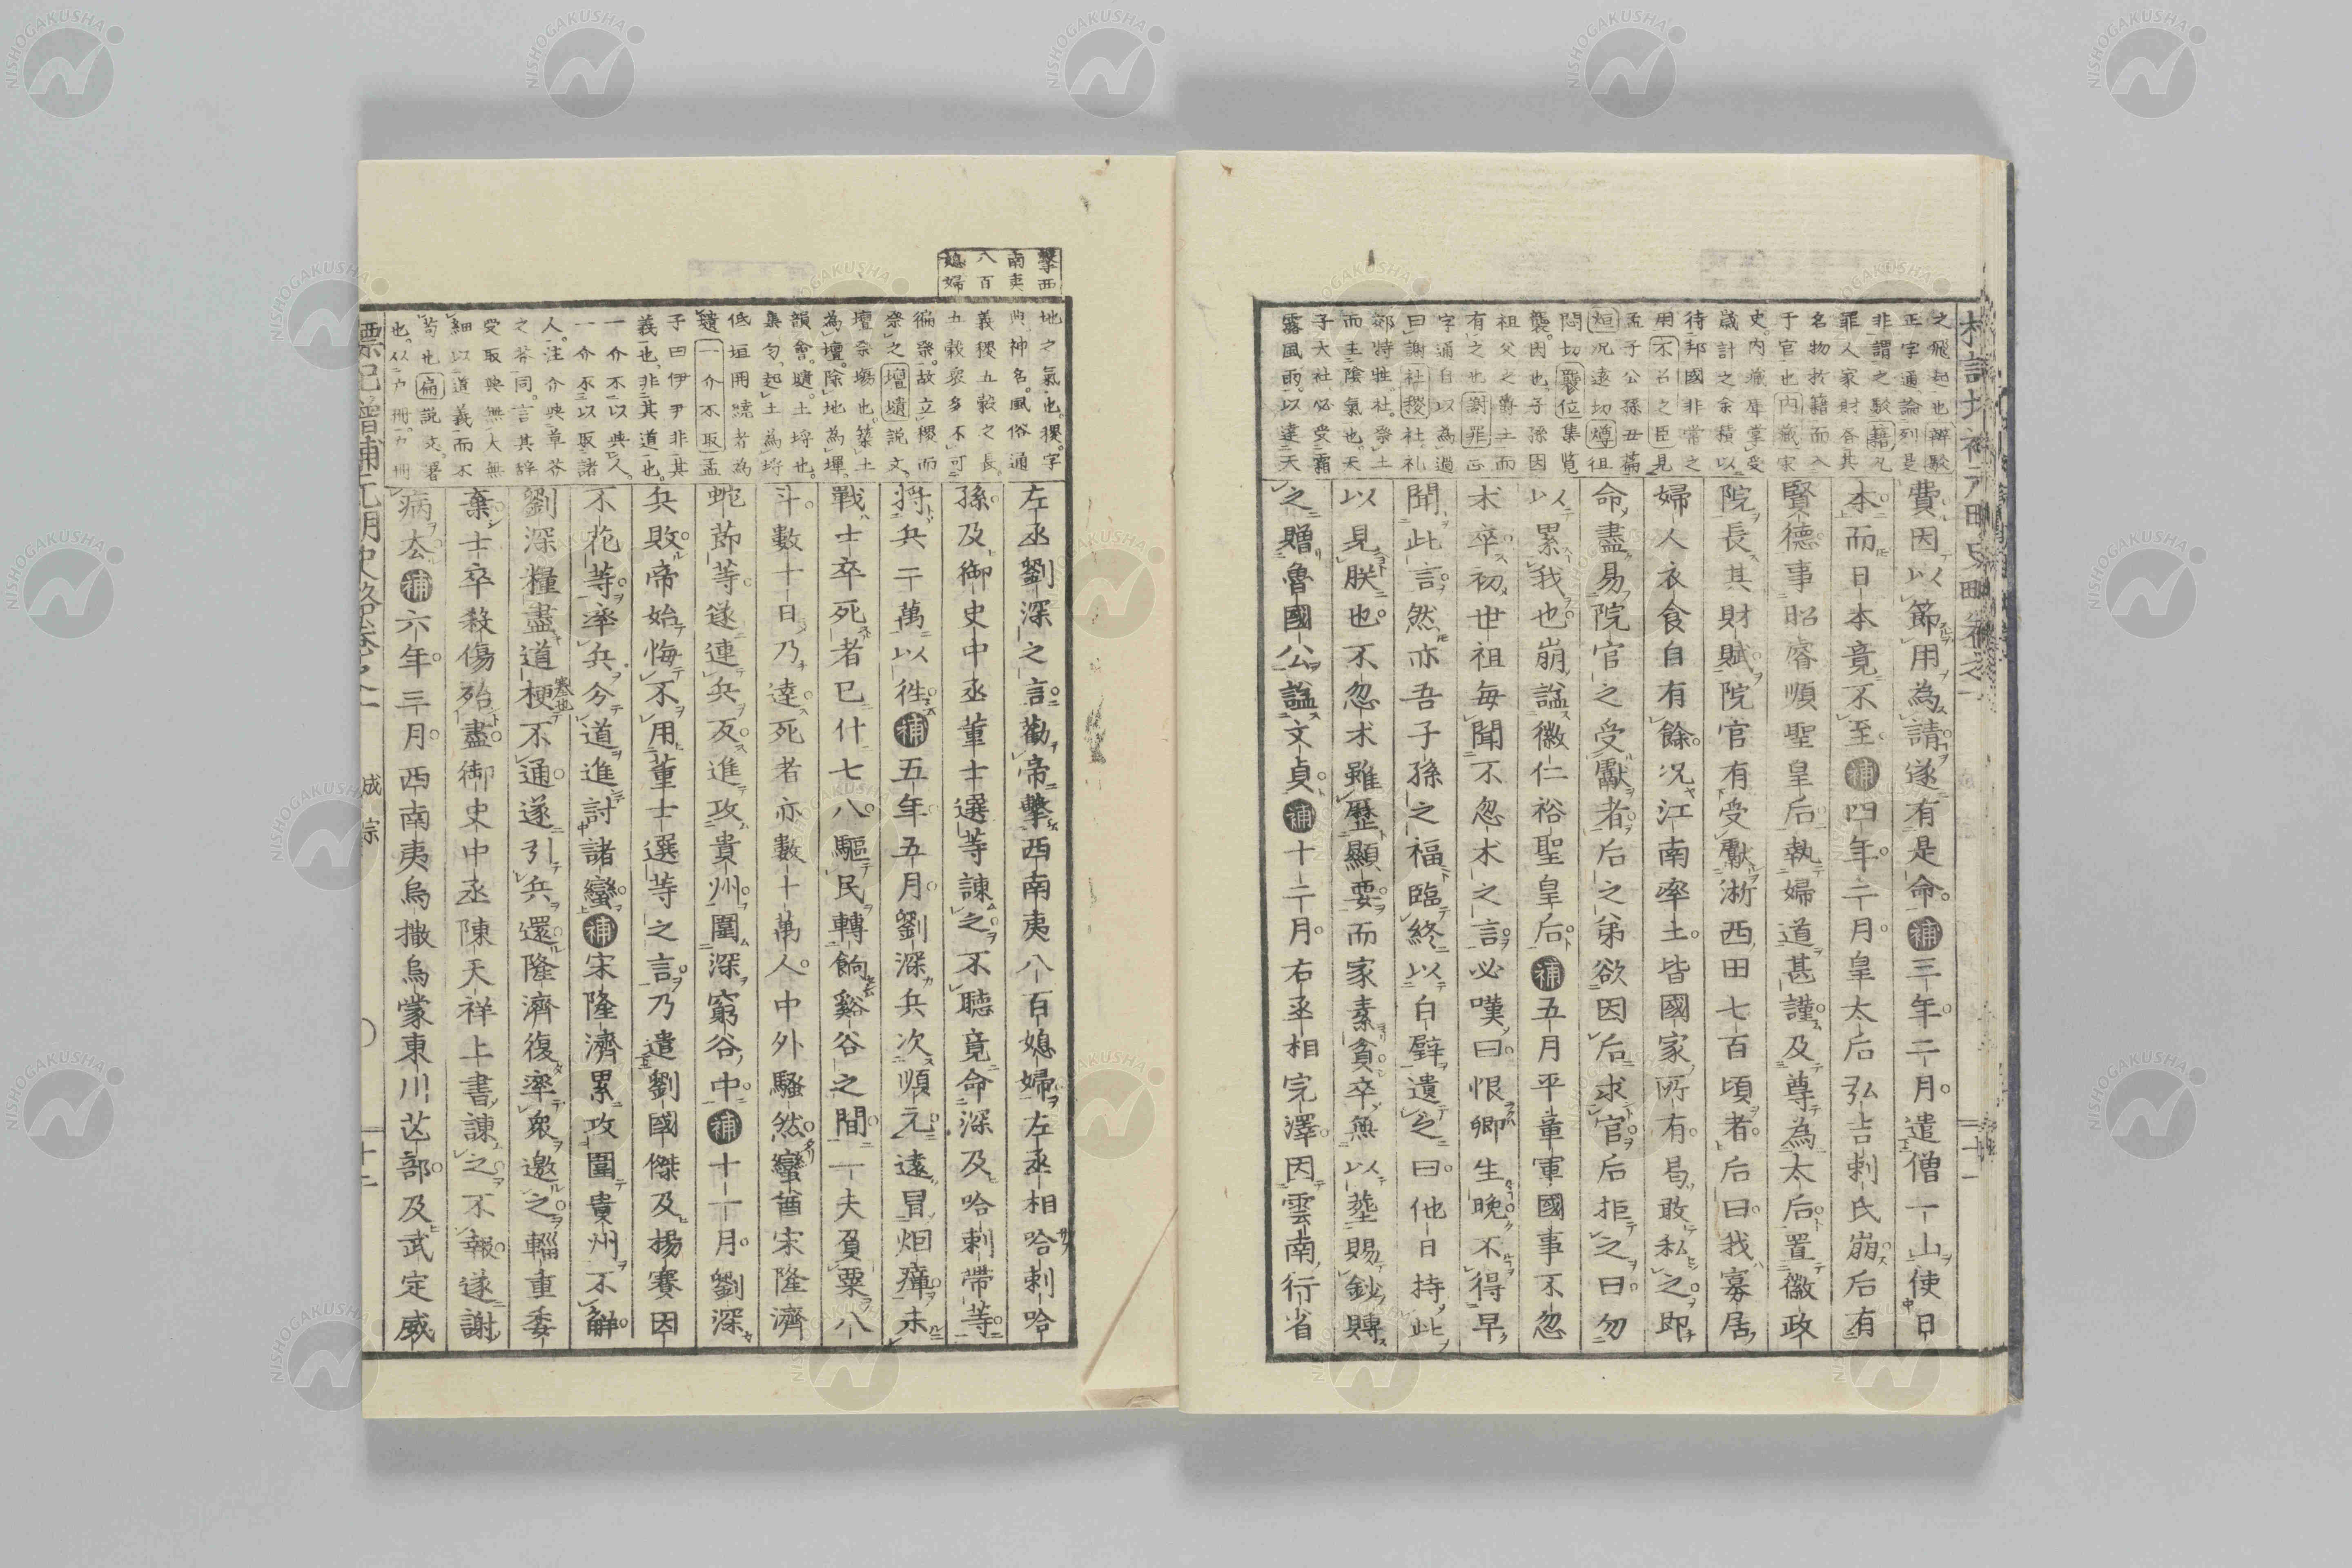 費因以節用為請遂有是命補三年二月遣僧一山使日
本而日本竟不至補四年二月皇太后弘吉剌氏崩后有
賢德事昭睿順聖皇后執婦道甚謹及尊為太后置徽政
院長其財賦院官有受獻浙西田七百頃者后曰我寡居
婦人衣食自有餘況江南率土皆國家所有曷敢私之即
命盡易院官之受獻者后之弟欲因后求官后拒之曰勿
以累我也崩謚徽仁裕聖皇后補五月平章軍國事不忽
朮卒初世祖每聞不忽朮之言必嘆曰恨卿生晚不得早
聞此言然亦吾子孫之福臨終以白璧遺之曰他日持此
以見朕也不忽朮雖歷顯要而家素貧卒無以葬賜鈔賻
之贈魯國公謚文貞補十二月右丞相完澤因雲南行省
之飛起也辨駁
正字通論列是
非謂之駮籍凡
罪人家財各其
名物於籍而入
于官也内藏宋
史内藏庫掌受
歳計之余積以
待邦國非常之
用不召之臣見
孟子公孫丑篇
烜况遠切燇徂
悶切襲位集覧
襲因也子孫因
祖父之爵土而
有之也謝罪正
字通自以為過
曰謝社稷社礼
郊特牲社祭土
而主陰氣也天
子大社必受霜
露風雨以達天
撃西
南夷
八百
媳婦
地之氣也稷字
典神名風俗通
義稷五穀之長
五穀衆多不可
徧祭故立稷而
祭之壇壝説文
壇祭塲也築土
為壇除地為墠
韻會壝土埒也
集匀起土為埒
低垣冊繞者為
壝一介不取孟
子曰伊尹非其
義也非其道也
一介不以與人
一介不以取諸
人注介與草芥
之芥同言其辞
受取與無大無
細以道義而不
苟也扁説文署
也从戸冊戸冊
左丞劉深之言勸帝擊西南夷八百媳婦左丞相哈剌哈
孫及御史中丞董士選等諫之不聽竟命深及哈剌帶等
將兵二萬以往補五年五月劉深兵次順元遠冒烟瘴未
戰士卒死者已什七八驅民轉餉谿谷之間一夫負粟八
斗數十日乃達死者亦數十萬人中外騷然蠻酋宋隆濟
蛇節等遂連兵反進攻貴州圍深窮谷中補十一月劉深
兵敗帝始悔不用董士選等之言乃遣劉國傑及楊賽因
不花等率兵分道進討諸蠻補宋隆濟累攻圍貴州不解
劉深糧盡道梗不通遂引兵還隆濟復率衆邀之輜重委
棄士卒殺傷殆盡御史中丞陳天祥上書諫之不報遂謝
病去補六年三月西南夷烏撒烏蒙東川芒部及武定威
標記增補元明史略卷之一 成宗 十二